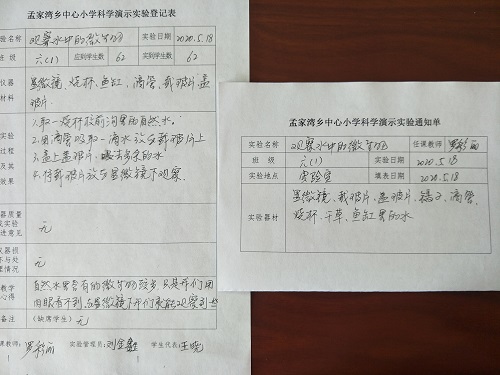 孟家湾乡中心小学科学演示实验登记表
验名称 观察水中的微生物 实验日期 2020.5.18
班 级 六(1) 应到学生数 62 实到学生数 62
仪器
材料
显微镜、烧杯、鱼缸、滴管、载玻片、盖
玻片.
实验
过程
及其
效果
1.取一烧杯校前沟里的自然水.
2.用滴管吸取一滴水放在载玻片上
3.盖上盖玻片、吸去多余的水
4.将载玻片放在显微镜下观察.
器质量
及实验
进意见
无
仪器损
坏与处
理情况
无
教学
心得
自然水里含有的微生物较多,只是我们用
肉眼看不到,在显微镜下我们就能观察到些
备注 (缺席学生) 无
课教师: 罗彩丽 实验管理员: 刘金鑫 学生代表: 王晓
孟家湾乡中心小学科学演示实验通知单
实验名称 观察水中的微生物 任课教师 罗彩丽
班 级 六(1) 实验日期 2020.5.18
实验地点 实验室 填表日期 2020.5.18
实验器材
显微镜、载玻片、盖玻片、镊子、滴管、
烧杯、干草、鱼缸里的水